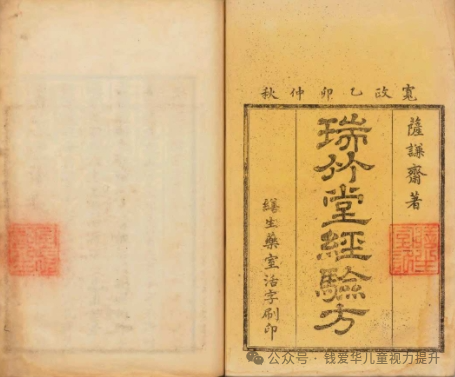 寬政乙卯仲秋
薩謙齋著
瑞竹堂經驗方
繕生藥室活字刷印
公众号 · 钱爱华儿童视力提升